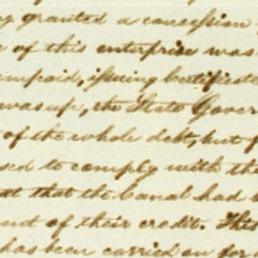 granted a concession
of this enterprise was
unpaid, issuing Certificate
was up, the State Gover
of the whole debt, but f
sed to comply with the
at that the Canal had
unt of their credit. This
has been carried on for a